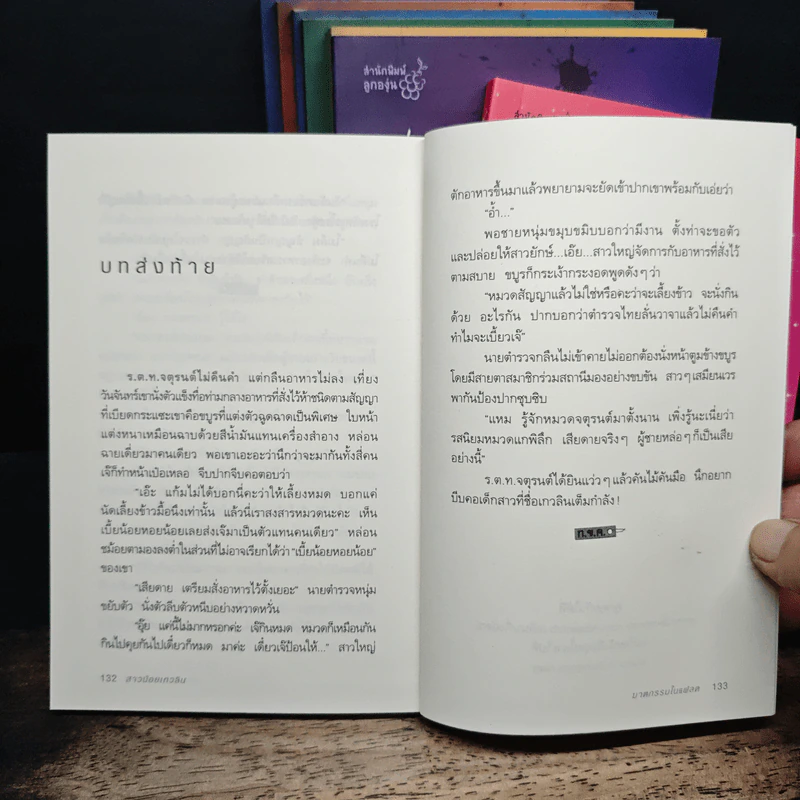 สำนักพิมพ์
ลูกองุ่น
บทส่งท้าย
ร.ต.ท.จตุรนต์ไม่คืนคำ แต่กลืนอาหารไม่ลง เที่ยง
วันจันทร์เขานั่งตัวแข็งทื่อท่ามกลางอาหารที่สั่งไว้ห้าชนิดตามสัญญา
ที่เบียดกระแซะเขาคือขบูรที่แต่งตัวฉูดฉาดเป็นพิเศษ ใบหน้า
แต่งหนาเหมือนฉาบด้วยสีน้ำมันแทนเครื่องสำอาง หล่อน
ฉายเดี่ยวมาคนเดียว พอเขาเอะอะว่านึกว่าจะมากันทั้งสี่คน
เจ๊ก็ทำหน้าเบ้อเหลอ จีบปากจีบคอตอบว่า
“เอ๊ะ แก้มไม่ได้บอกนี่คะว่าให้เลี้ยงหมด บอกแค่
นัดเลี้ยงข้าวมื้อนึงเท่านั้น แล้วนี่เราสงสารหมวดนะคะ เห็น
เบี้ยน้อยหอยน้อยเลยส่งเจ๊มาเป็นตัวแทนคนเดียว” หล่อน
ชม้อยตามองลงต่ำในส่วนที่ไม่อาจเรียกได้ว่า “เบี้ยน้อยหอยน้อย”
ของเขา
“เสียดาย เตรียมสั่งอาหารไว้ตั้งเยอะ” นายตำรวจหนุ่ม
ขยับตัว นั่งตัวลีบตัวหนีบอย่างหวาดหวั่น
“อุ๊ย แค่นี้ไม่มากหรอกค่ะ เจ๊กินหมด หมวดก็เหมือนกัน
กินไปคุยกันไปเดี๋ยวก็หมด มาค่ะ เดี๋ยวเจ๊ป้อนให้...” สาวใหญ่
132 สาวน้อยเกวลิน
ตักอาหารขึ้นมาแล้วพยายามจะยัดเข้าปากเขาพร้อมกับเอ่ยว่า
“อ้ำ...”
พอชายหนุ่มขมุบขมิบบอกว่ามีงาน ตั้งท่าจะขอตัว
และปล่อยให้สาวยักษ์...เอ๊ย...สาวใหญ่จัดการกับอาหารที่สั่งไว้
ตามสบาย ขบูรก็กระเง้ากระงอดพูดดังๆ ว่า
“หมวดสัญญาแล้วไม่ใช่หรือคะว่าจะเลี้ยงข้าว จะนั่งกิน
ด้วย อะไรกัน ปากบอกว่าตำรวจไทยลั่นวาจาแล้วไม่คืนคำ
ทำไมจะเบี้ยวเจ๊”
นายตำรวจกลืนไม่เข้าคายไม่ออกต้องนั่งหน้าตูมข้างขบูร
โดยมีสายตาสมาชิกร่วมสถานีมองอย่างขบขัน สาวๆ เสมียนเวร
พากันป้องปากซุบซิบ
“แหม รู้จักหมวดจตุรนต์มาตั้งนาน เพิ่งรู้นะเนี่ยว่า
รสนิยมหมวดแกพิลึก เสียดายจริงๆ ผู้ชายหล่อๆ ก็เป็นเสีย
อย่างนี้”
ร.ต.ท.จตุรนต์ได้ยินแว่วๆ แล้วคันไม้คันมือ นึกอยาก
บีบคอเด็กสาวที่ชื่อเกวลินเต็มกำลัง!
ก.ข.ค.
ฆาตกรรมในแฟลต 133